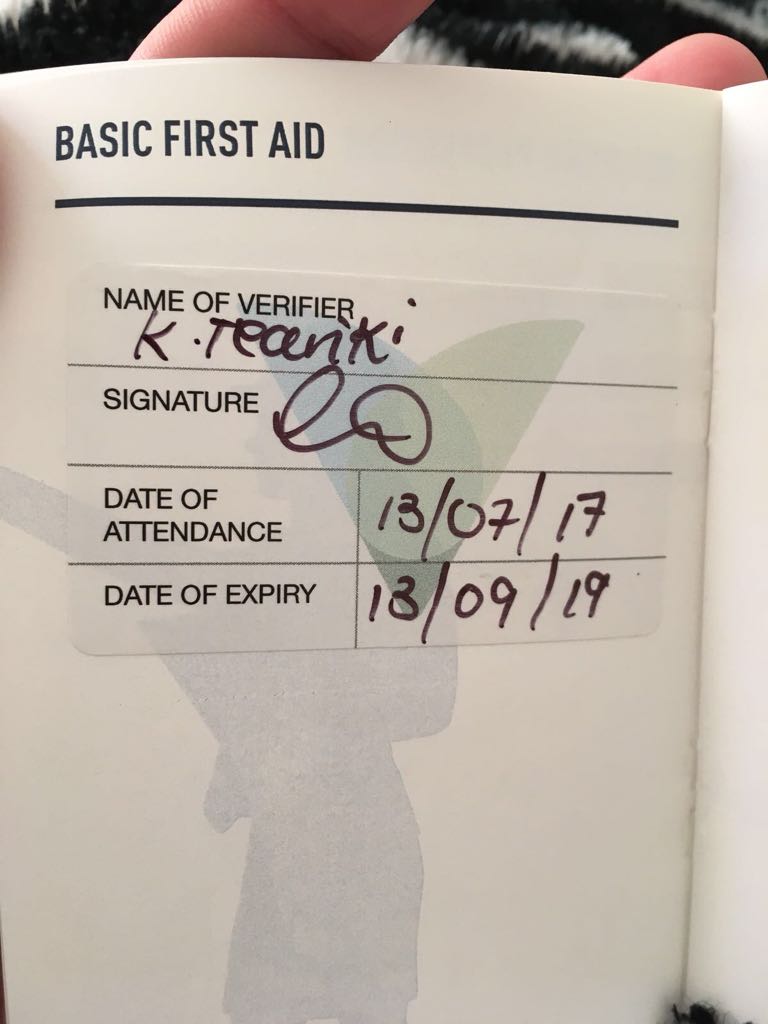 BASIC FIRST AID
NAME OF VERIFIER
K. Teariki
SIGNATURE
DATE OF
ATTENDANCE
13/07/17
DATE OF EXPIRY
13/09/19